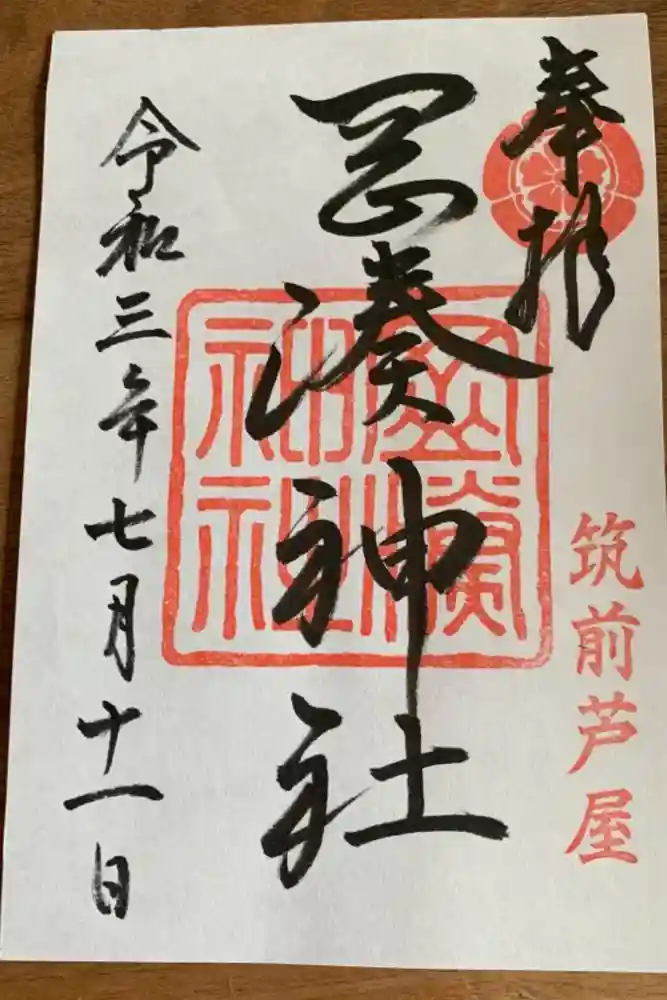 奉拝
筑前芦屋
岡湊神社
令和三年七月十一日